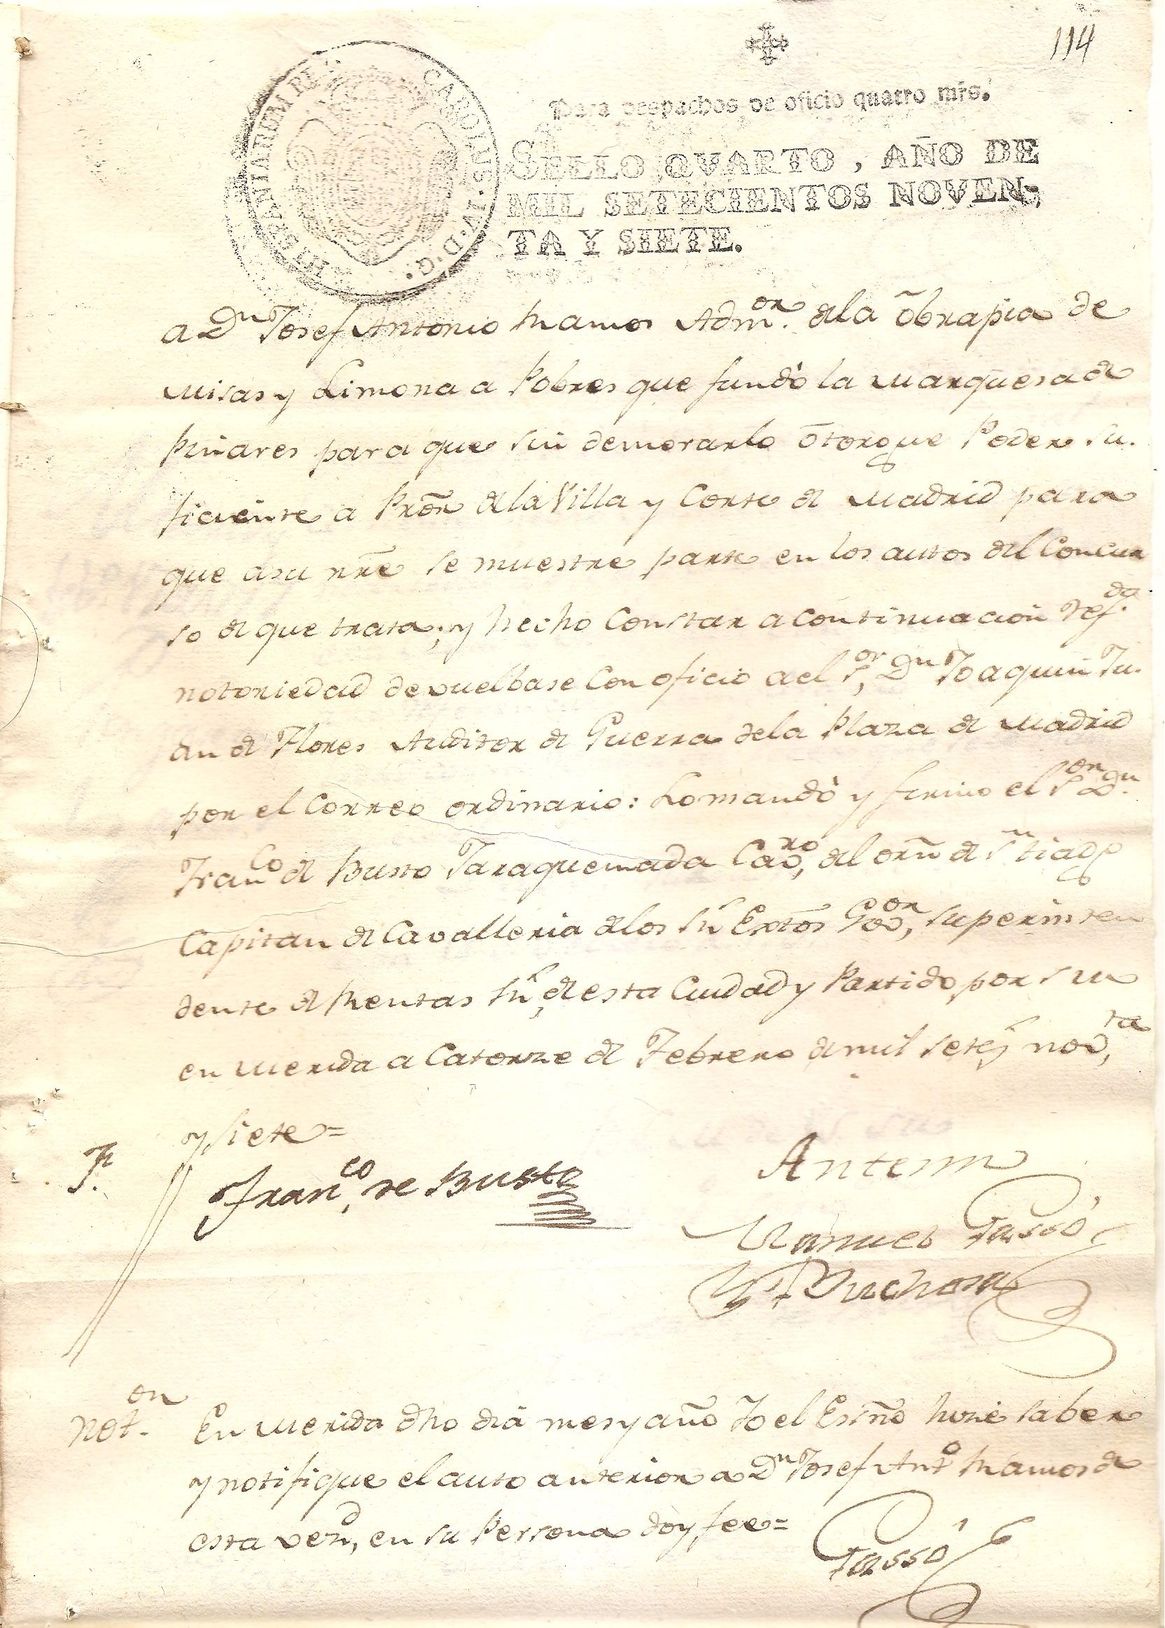 114
Para despachos de oficio quatro mrs.
SELLO QVARTO, AÑO DE
MIL SETECIENTOS NOVEN-
TA Y SIETE.
CAROLUS IV D. G. HISPANIARUM REX
a Dn Josef Antonio Ramos Admor. de la obrapia de
Misas y Limona a Pobres que fundò la Marquesa de
Pinares para que sin demorarlo otorgue Poder su-
ficiente a Pror. de la Villa y Corte de Madrid para
que a su nre se muestre parte en los autos del Concur
so de que trata; y hecho constar a continuacion
notoriedad devuelbase con oficio a el Sor, Dn Joaquin Ju-
an de Flores Auditor de Guerra de la Plaza de Madrid
por el Correo ordinario: Lo mandò y firmo el Sor Dn
Franco de Busto Taraquemada Cavro, del orn de Sntiago
Capitan de Cavalleria de los Rs Extos Govor, superinten
dente de Rentas Rs, de esta Ciudad y Partido por S M
en Merida a Catorze de Febrero de mil setes novta,
y siete=
Franco. de Busto
Antemi
Manuel Passó
Noton.
En Merida dho dia mes y año Yo el Essno hize saber
y notifique el auto anterior a Dn Josef Anto Ramos de
esta vezd, en su Persona doy fee=
Passó